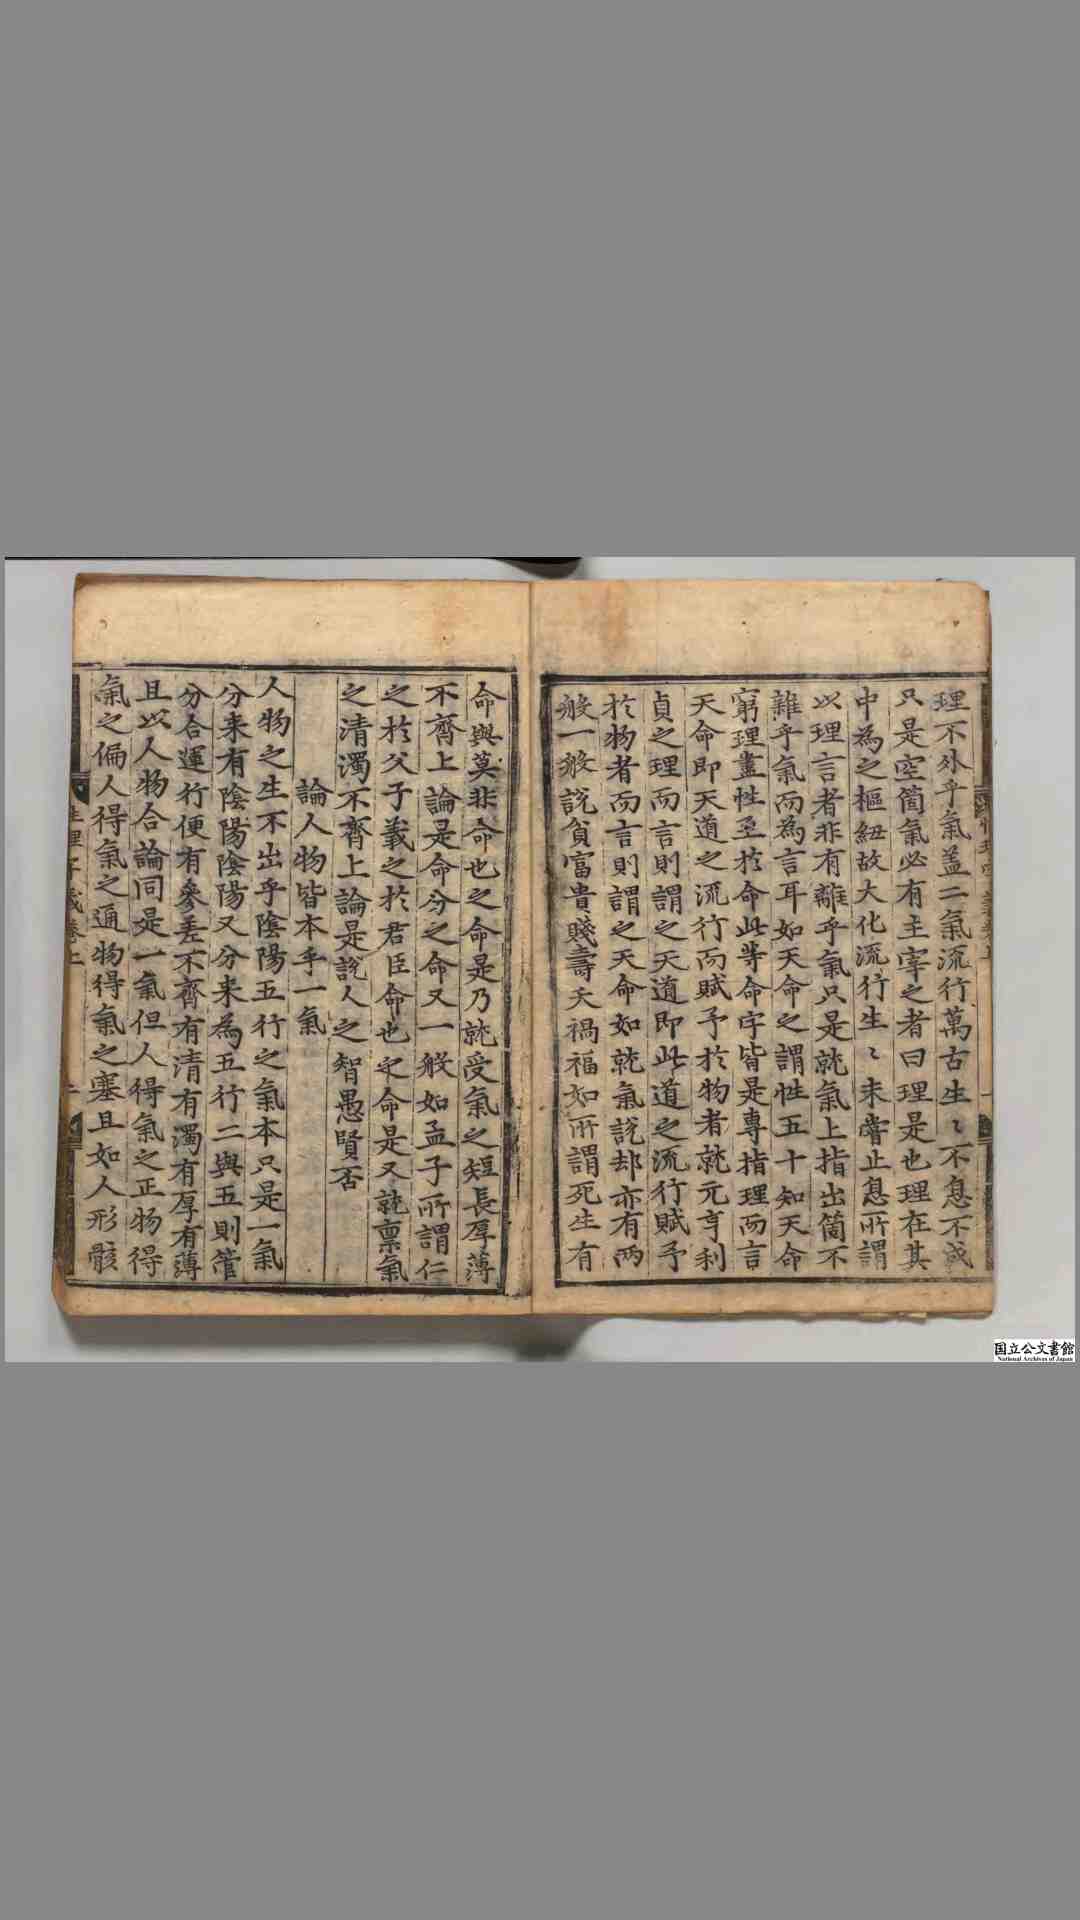 理不外乎氣盖二氣流行萬古生〻不息不成
只是空箇氣必有主宰之者曰理是也理在其
中為之樞紐故大化流行生〻未嘗止息所謂
以理言者非有離乎氣只是就氣上指出箇不
雜乎氣而為言耳如天命之謂性五十知天命
窮理盡性至於命此等命字皆是專指理而言
天命即天道之流行而賦予於物者就元亨利
貞之理而言則謂之天道即此道之流行賦予
於物者而言則謂之天命如就氣說却亦有兩
般一般說貧富貴賤壽夭禍福如所謂死生有
命與莫非命也之命是乃就受氣之短長厚薄
不齊上論是命分之命又一般如孟子所謂仁
之於父子義之於君臣命也之命是又就禀氣
之清濁不齊上論是說人之智愚賢否
論人物皆本乎一氣
人物之生不出乎陰陽五行之氣本只是一氣
分来有陰陽陰陽又分来為五行二與五則管
分合運行便有參差不齊有清有濁有厚有薄
且以人物合論同是一氣但人得氣之正物得
氣之偏人得氣之通物得氣之塞且如人形骸
性理字義卷上
国立公文書館
National Archives of Japan